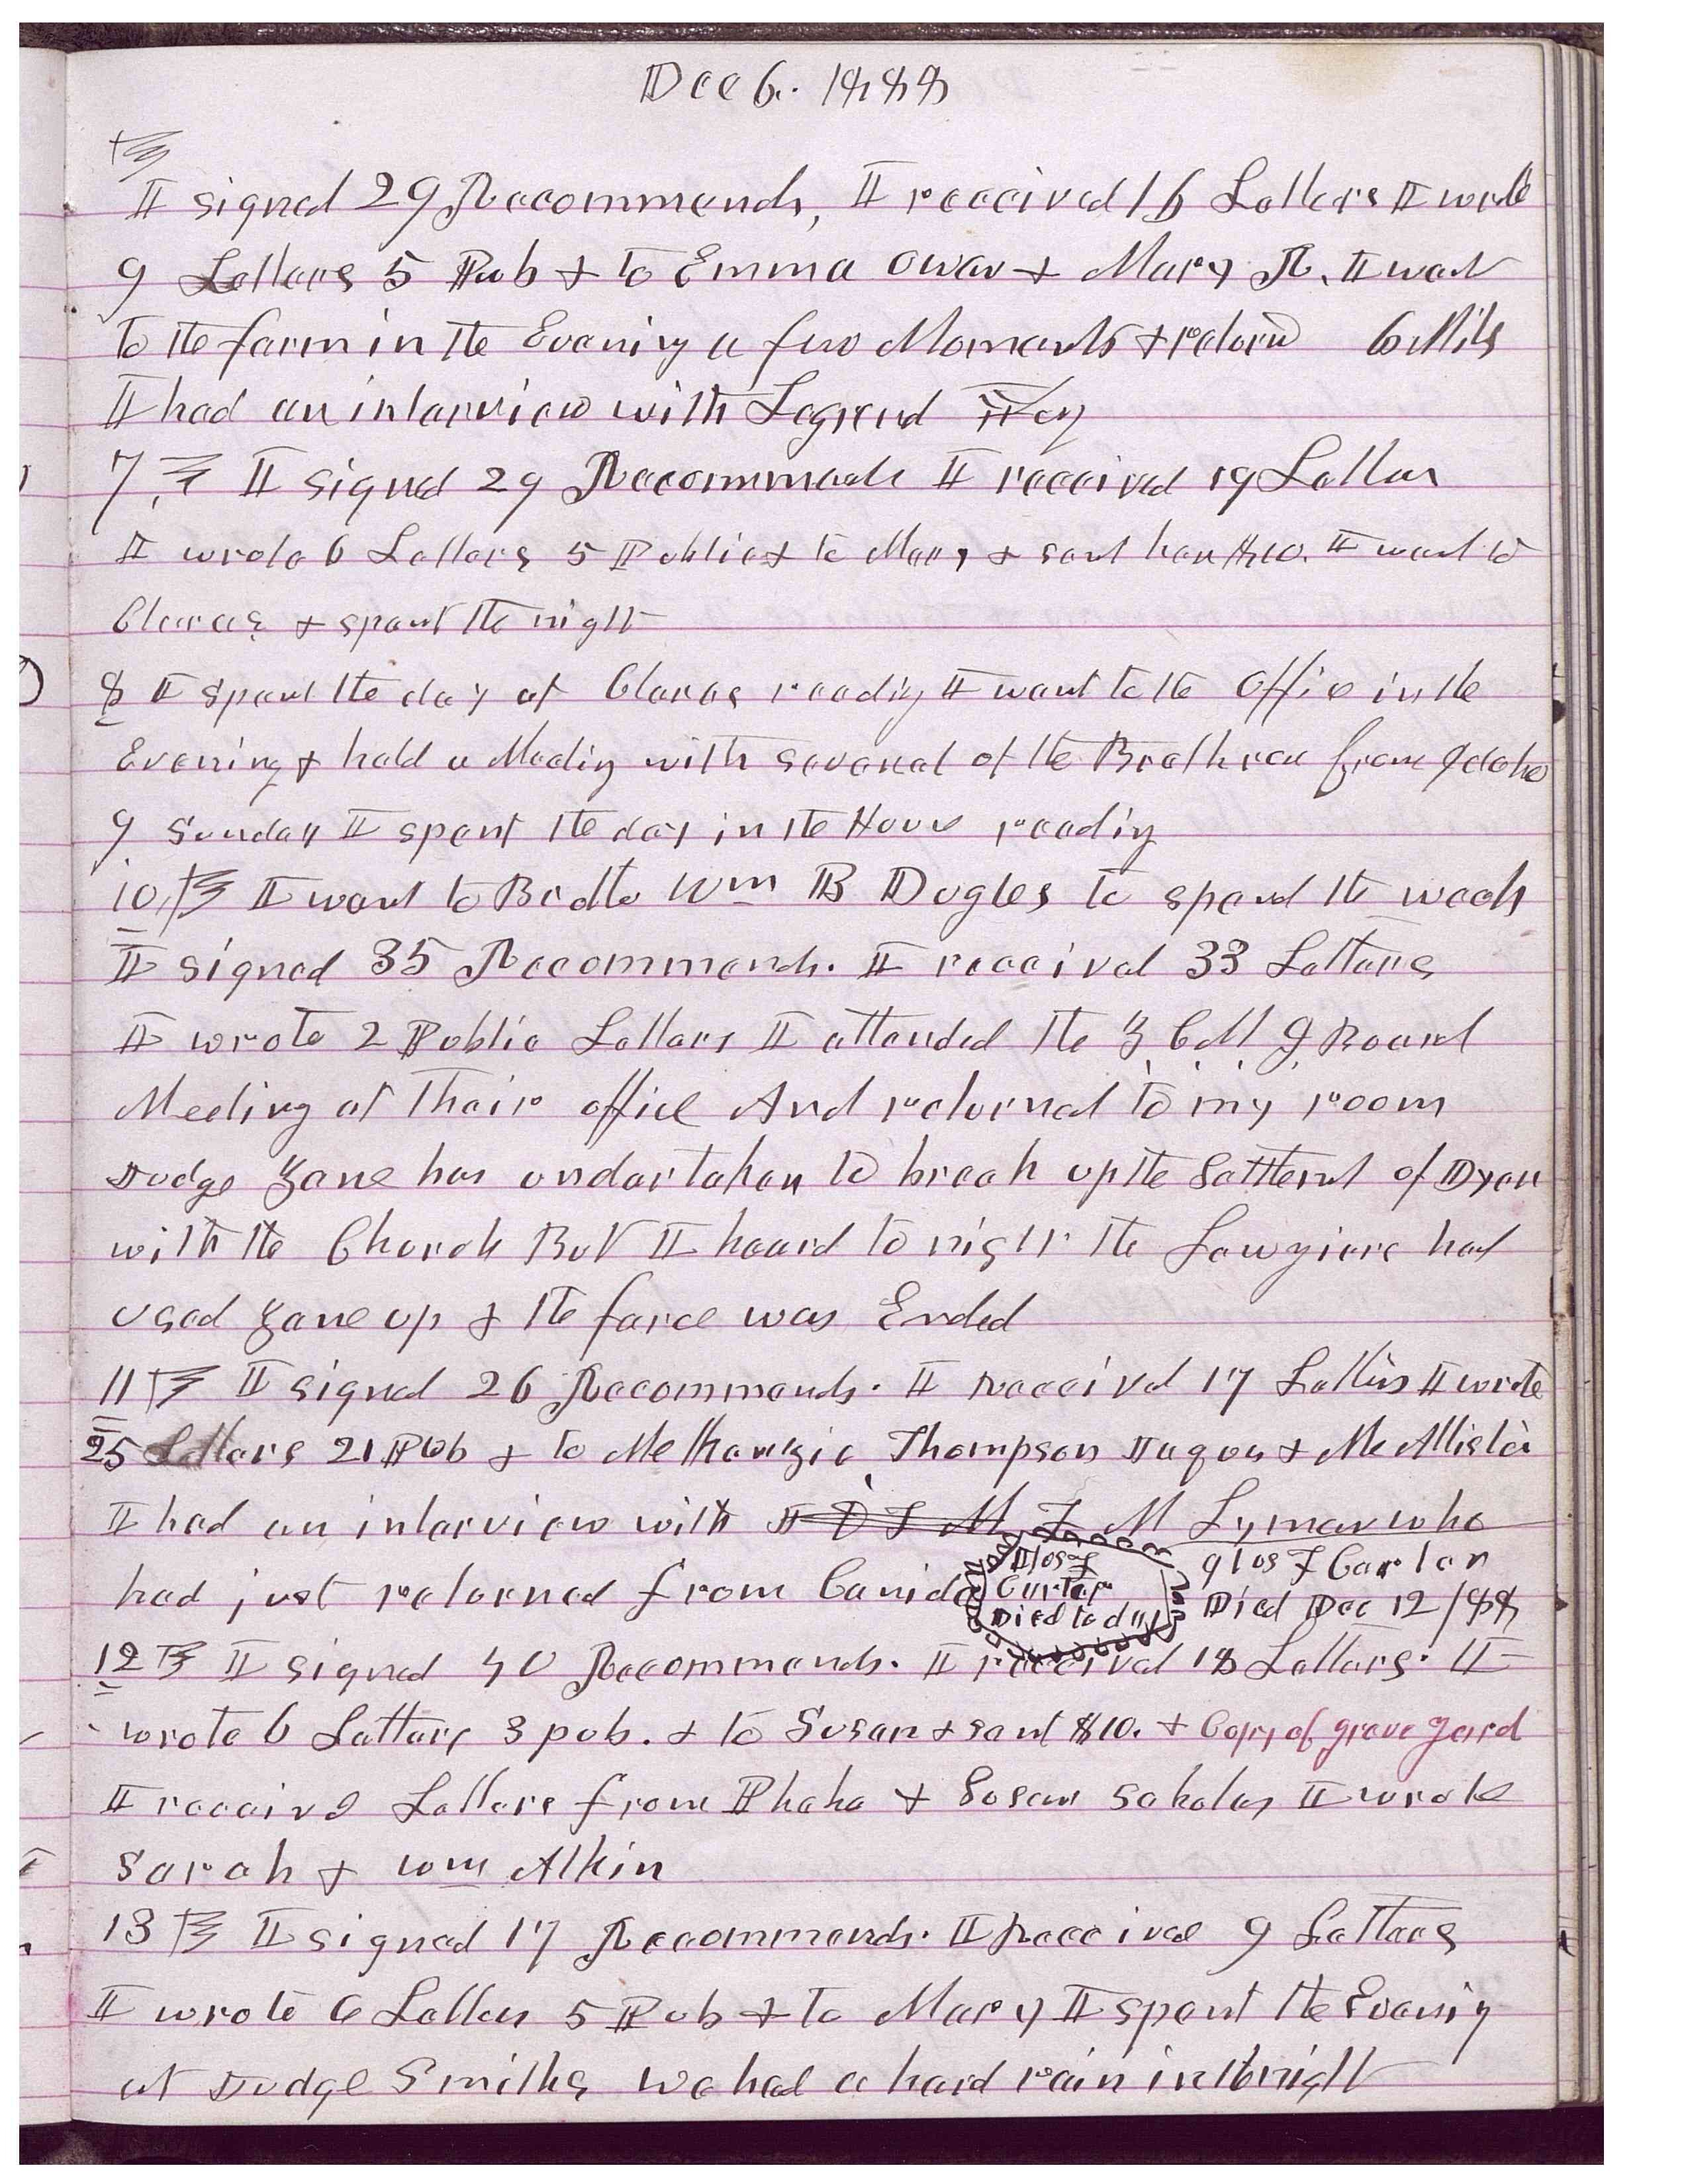 Dec 6. 1888
I signed 29 Recommends, I received 16 Letters I wrote
9 Letters 5 Pub & to Emma Owen & Mary R. I went
to the farm in the Evening a few Moments & returnd 6 Mils
I had an interview with Legrend
7, I signed 29 Recommends I received 19 Letters
I wrote 6 Letters 5 Public & to Mary & sent her $10. I went to
Claras & spent the night
8 I spent the day at Claras reading I went to the Office in the
Evening & held a Meeting with several of the Brethren from Idaho
9 Sunday I spent the day in the House reading
10 I went to Brother Wm B Dogles to spend the week
I signed 35 Recommends. I received 33 Letters
I wrote 2 Public Letters I attended the Z C M I Board
Meeting at Their office And returned to my room
Judge Zane has undertaken to break up the Settlemt of Dyer
with the Church But I heard to night the Lawyiers had
used Zane up & the farce was Ended
11 I signed 26 Recommends. I received 17 Letters I wrote
25 Letters 21 Pub & to McKenzie, Thompson Jaques & McAllister
I had an interview with F M Lyman who
had just returned from Canida
Josf
Carter
Died to day
Ilos F Carter
Died Dec 12/88
12 I signed 40 Recommends. I received 18 Letters. I
wrote 6 Letters 3 pub. & to Susan & sent $10. & Copy of grave yard
I receivd Letters from Phebe & Susan Scholes I wrote
Sarah & Wm Atkin
13 I signed 17 Recommends. I Received 9 Letters
I wrote 6 Letters 5 Pub & to Mary I spent the Evenig
at Judge Smiths we had a hard rain in the night